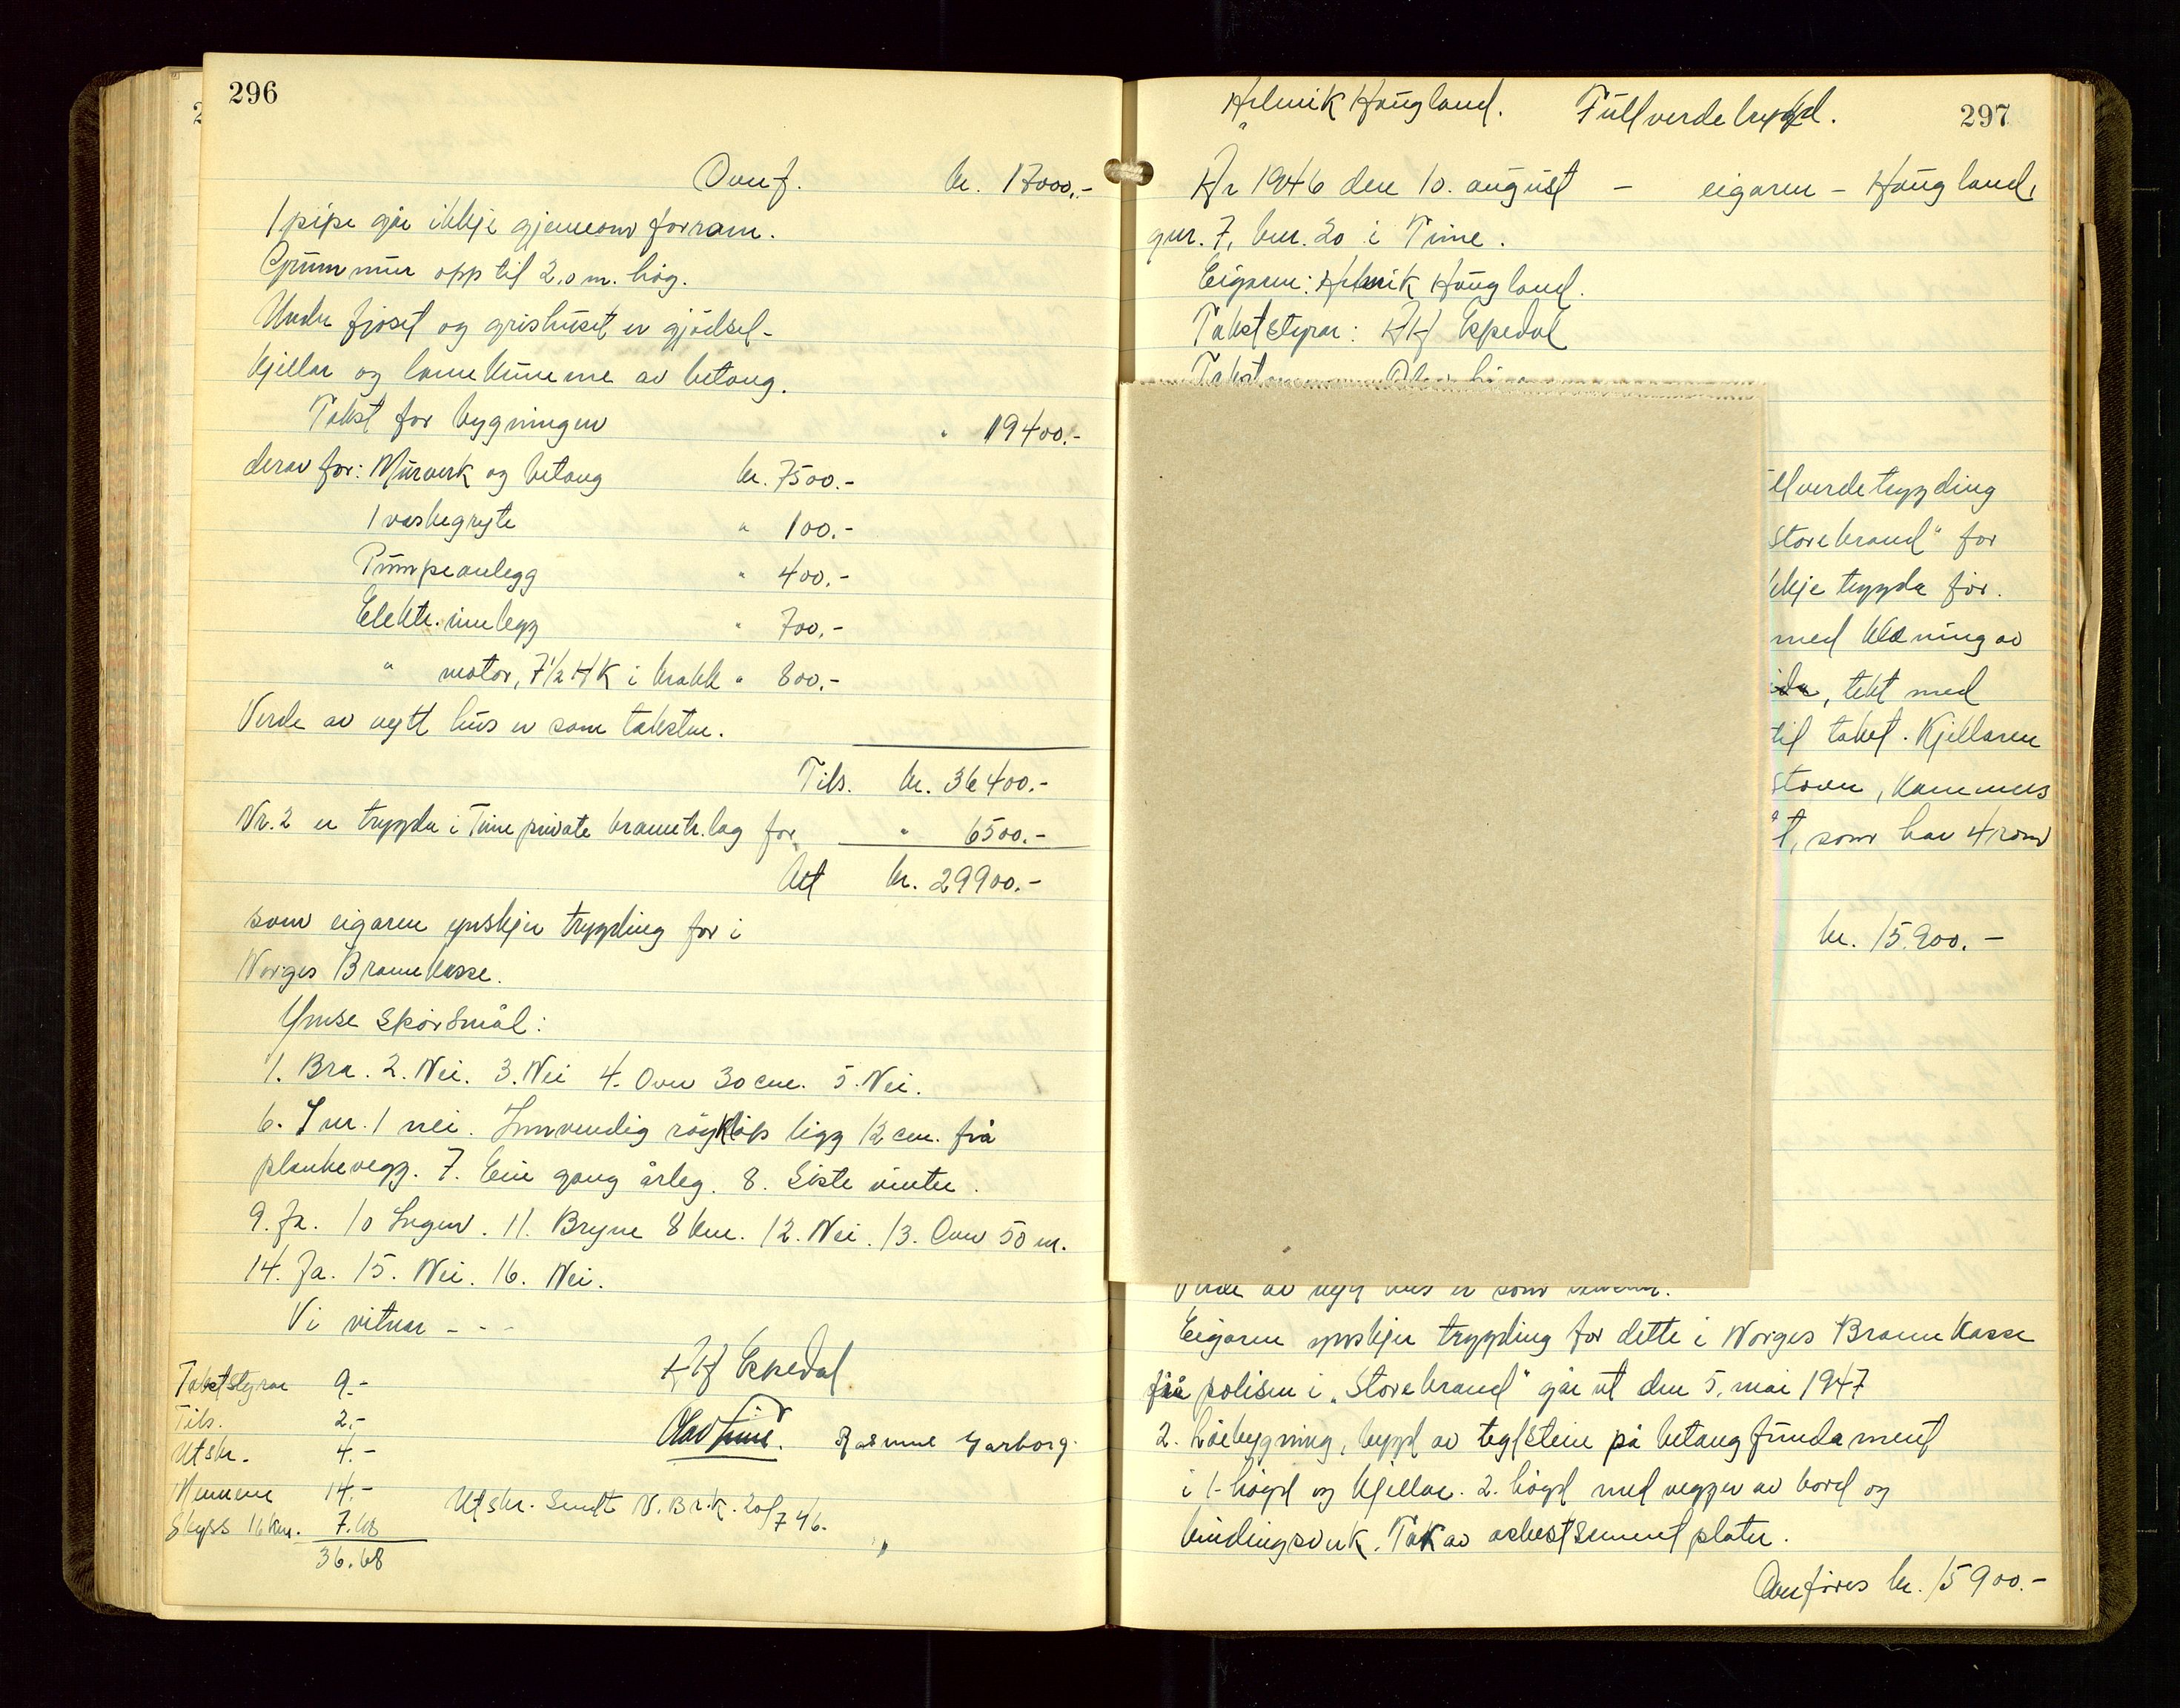 296
Overf. kr. 17000.-
1 pipe går ikkje gjennom forram.
Grunnmur opp til 2,0 m. høg.
Under fjøset og grishuset er gjødsel-
kjellar og lannkumme av betong.
Takst for bygningen " 19400.-
derav for: Murverk og betong kr. 7500.-
1 vaskegryte " 100.-
Pumpeanlegg " 400.-
Elektr. innlegg " 700.-
" motor, 7½ HK i krakk " 800.-
Verde av nytt hus er som taksten.
Tils. kr. 36400.-
Nr. 2 er trygda i Time private branntr.lag for " 6500.-
Att kr. 29900.-
som eigaren ynskjer trygding for i
Norges Brannkasse.
Ymse spørsmål:
1. Bra. 2. Nei. 3. Nei 4. Over 30 cm. 5. Nei.
6. I nr. 1 nei. Innvendig røykløp ligg 12 cm. frå
plankevegg. 7. Ein gong årleg. 8. Siste vinter.
9. Ja. 10 Ingen. 11. Bryne 8 km. 12. Nei. 13. Over 50 m.
14. Ja. 15. Nei. 16. Nei.
Vi vitnar - - -
KH Espedal
Olav Time. Rasmus Garborg.
Takststyrar 9.-
Tils. 2.-
Utskr. 4.-
Mennene 14.-
Skyss 16 km. 7.68
36.68
Utskr. Sendt N.Br.K. 20/7 46.
Helmik Haugland. Fullverdetrygd. 297
År 1946 den 10. august - eigaren - Haugland,
gnr. 7, bnr. 20 i Time.
Eigaren: Helmik Haugland.
Takststyrar: KH Espedal
ullverdetrygding
Storebrand" for
ikkje trygda før.
med kledning av
ida, tekt med
til taket. Kjellaren
stover, kammers
t, som har 4 rom
kr. 15.900.-
Verde av nytt hus er som taksten.
Eigaren ynskjer trygding for dette i Norges Brannkasse
frå polisen i "Storebrand" går ut den 5. mai 1947
2. Løebygning, bygd av teglstein på betong fundament
i 1. høgd og kjellar. 2. høgd med vegger av bord og
bindingsverk. Tak av asbestsementplater.
Overføres kr. 15900.-